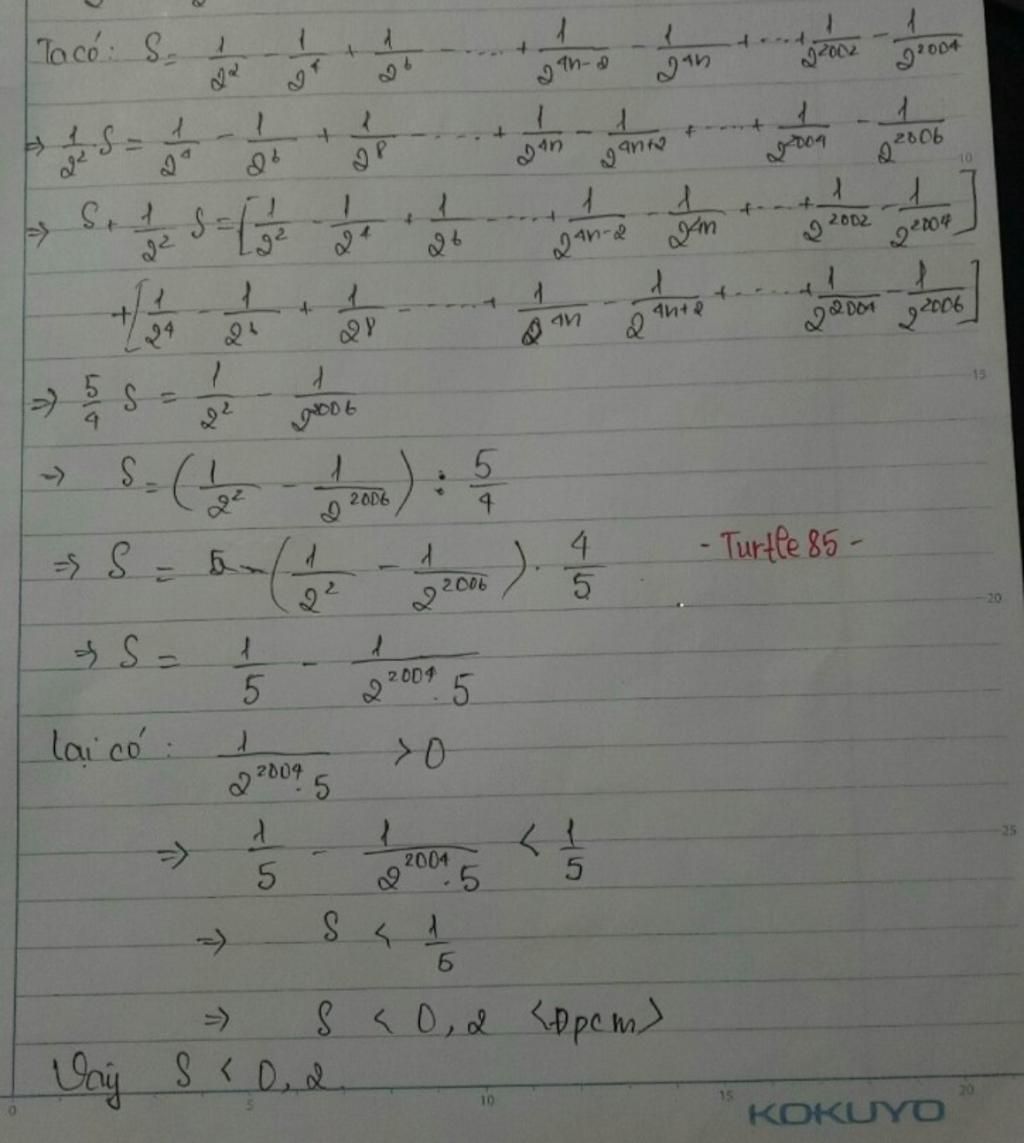 Ta có: S = 1/2^2 - 1/2^4 + 1/2^6 - ..... + 1/2^(4n-2) - 1/2^(4n) + ... + 1/2^2002 - 1/2^2004
⇒ 1/2^2 . S = 1/2^4 - 1/2^6 + 1/2^8 - ..... + 1/2^(4n) - 1/2^(4n+2) + ..... + 1/2^2004 - 1/2^2006
10
⇒ S + 1/2^2 S = [1/2^2 - 1/2^4 + 1/2^6 ..... + 1/2^(4n-2) - 1/2^(4n) + ... + 1/2^2002 - 1/2^2004]
+ [1/2^4 - 1/2^6 + 1/2^8 - ..... + 1/2^(4n) - 1/2^(4n+2) + ..... + 1/2^2004 - 1/2^2006]
15
⇒ 5/4 S = 1/2^2 - 1/2^2006
⇒ S = (1/2^2 - 1/2^2006) : 5/4
⇒ S = (1/2^2 - 1/2^2006) . 4/5 - Turtle 85 -
20
⇒ S = 1/5 - 1/(2^2004 . 5)
Lại có: 1/(2^2004 . 5) > 0
25
⇒ 1/5 - 1/(2^2004 . 5) < 1/5
⇒ S < 1/5
⇒ S < 0,2 <Đpcm>
Vậy S < 0,2
0 5 10 15 20
KOKUYO